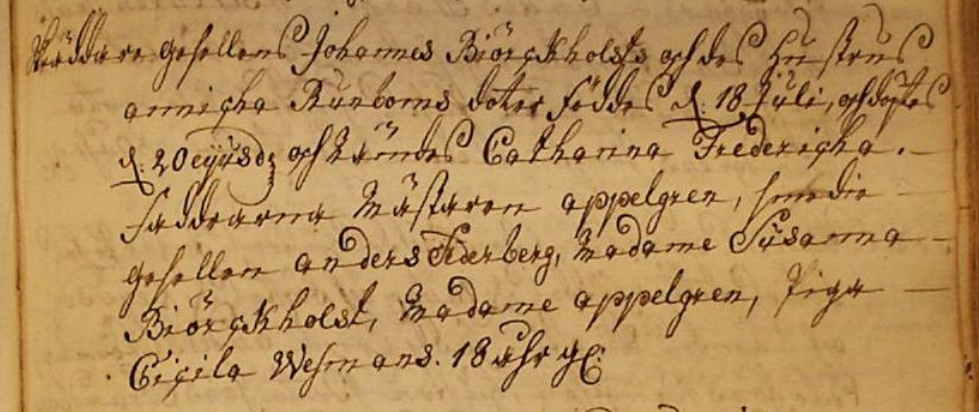 Gesellens Johannes Biörckholsts och des Hustrus
annicka Runboms doter föddes d. 18 Juli, och döptes
d. 20 eijusd; och nämdes Catharina Fredericka.
faddrarna Mästaren appelgren, smedie
gesellen anders Federberg, Madame Susanna
Biörckholst, Madame appelgren, Piga
Cicila Wesmans. 18 åhr gl.